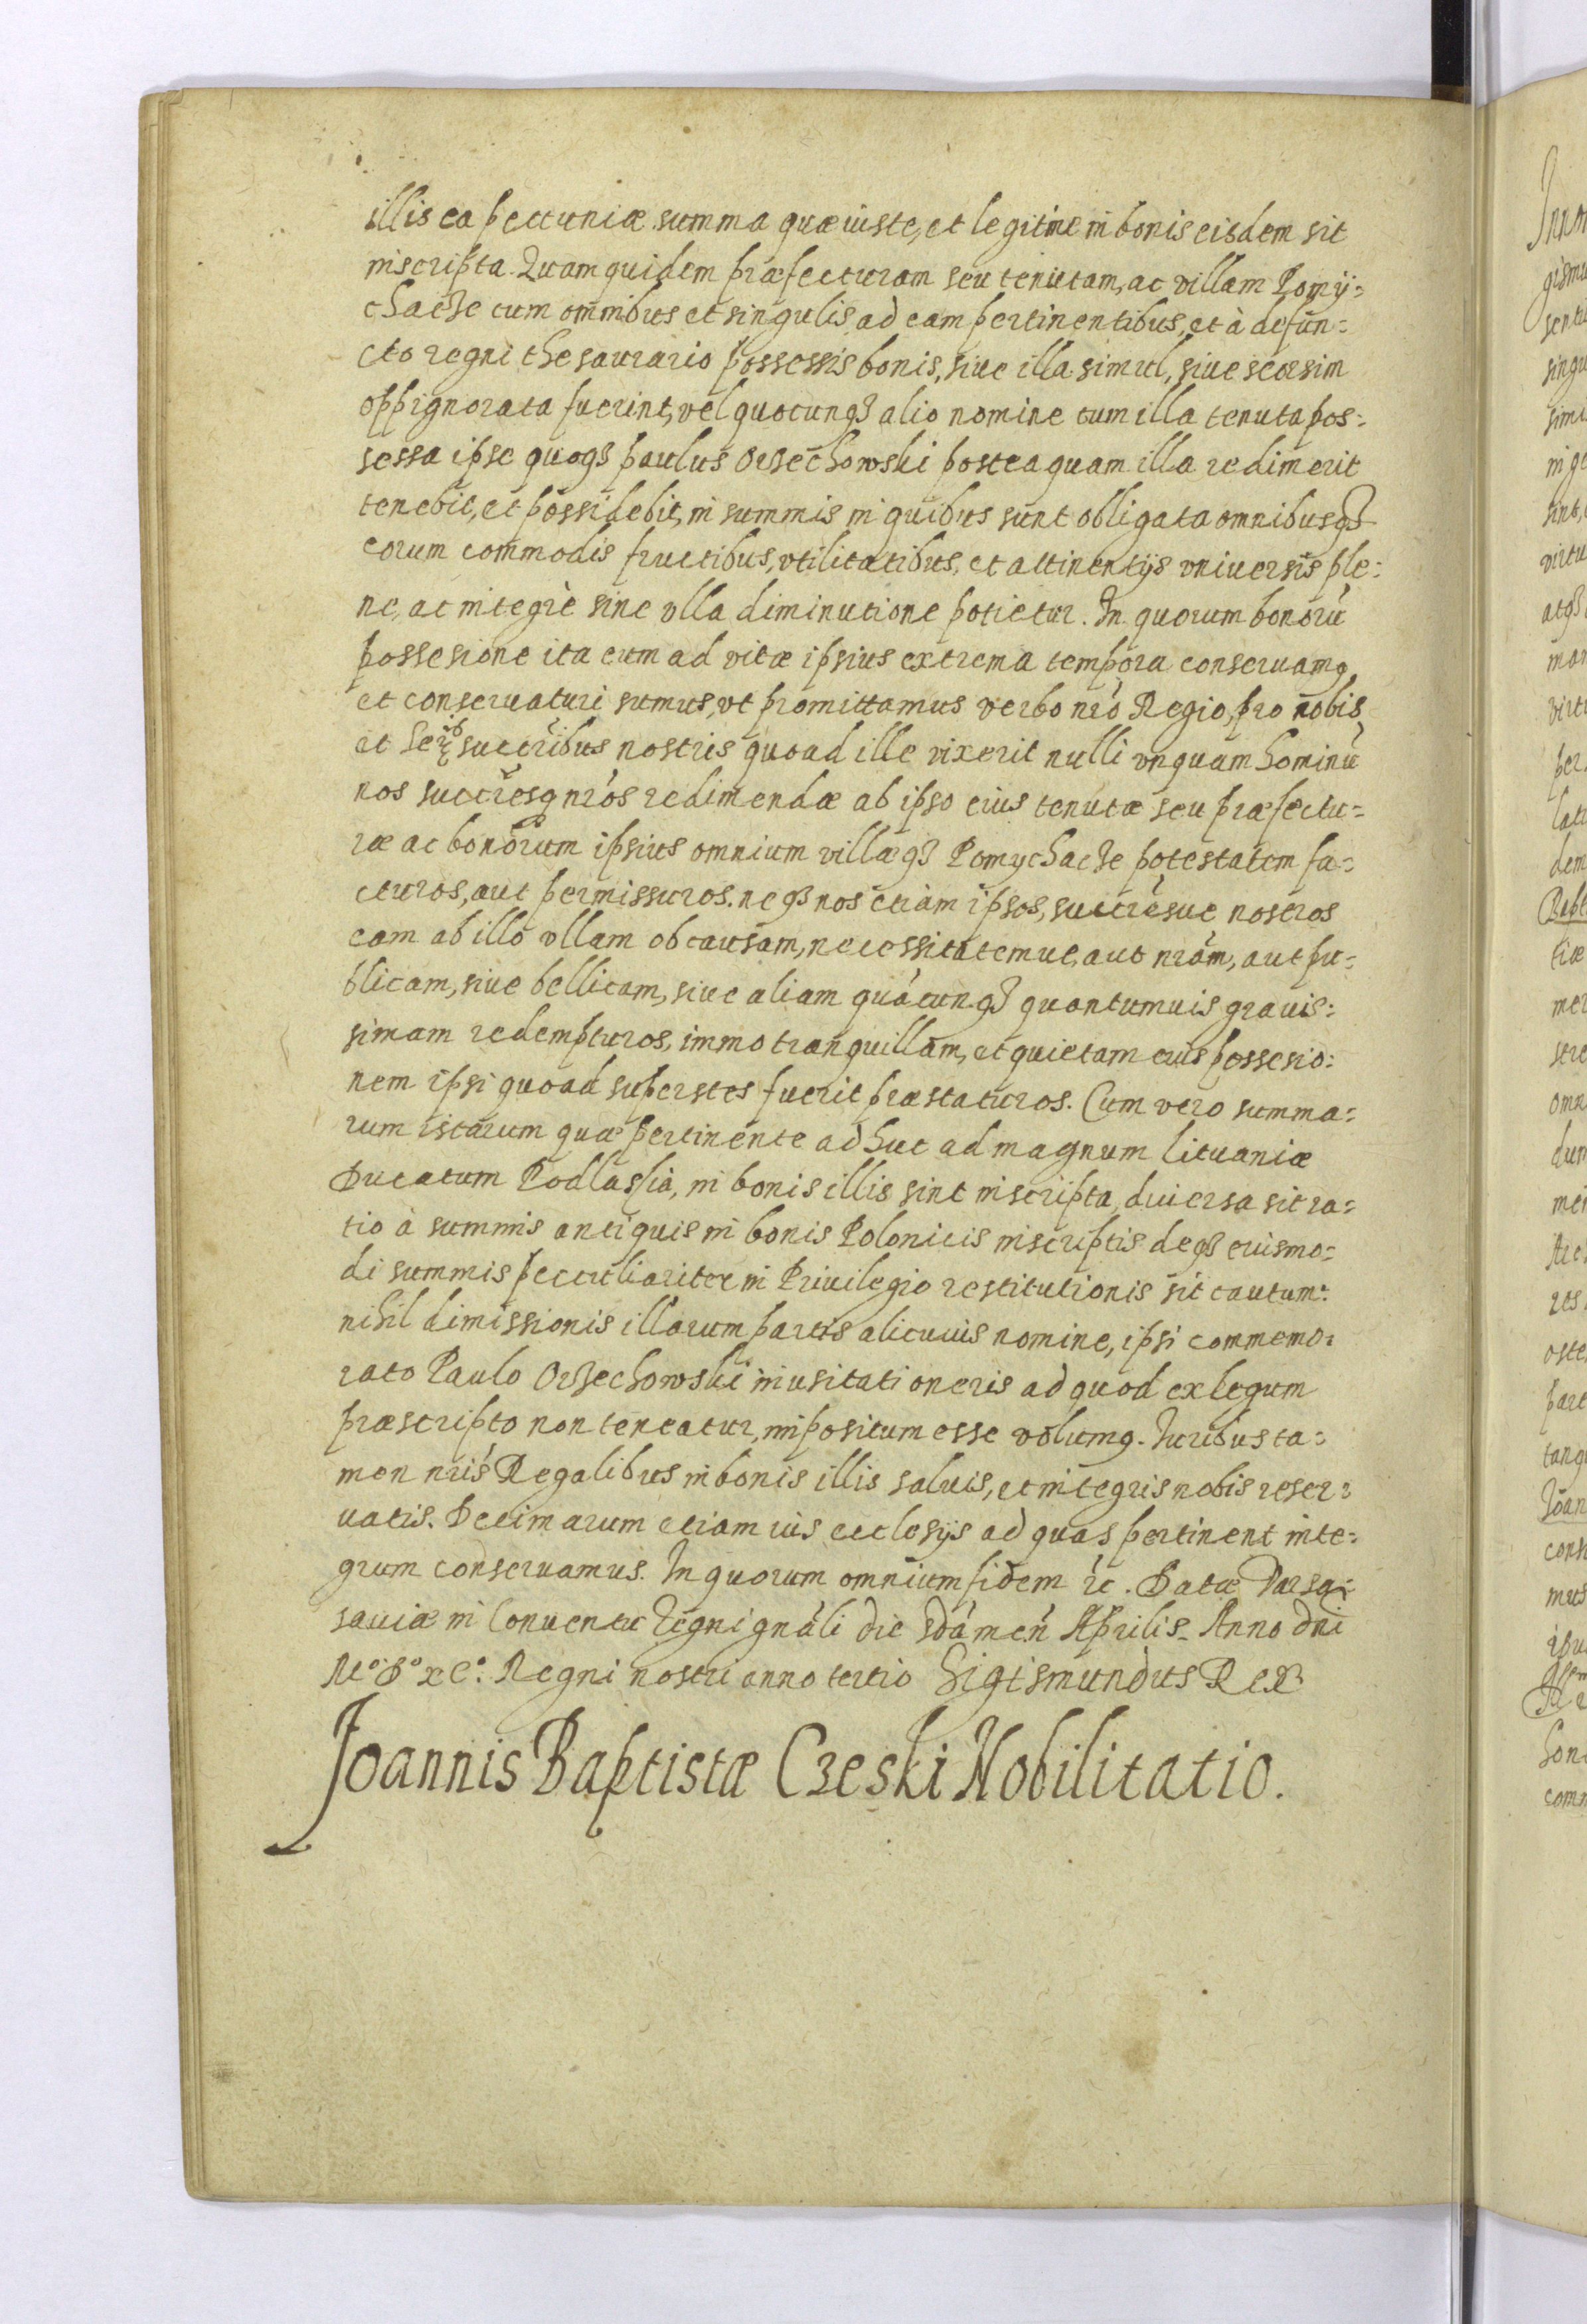 illis ea pecuniæ summa quæ iuste, et legitime in bonis eisdem sit
inscripta. Quam quidem præfecturam seu tenutam, ac villam Pomÿ=
chacze cum omnibus et singulis ad eam pertinentibus, et à defun=
cto regni thesaurario possessis bonis, siue illa simul, siue seorsim
oppignorata fuerint, vel quocunqȝ alio nomine cum illa tenuta pos=
sessa ipse quoqȝ paulus Orzechowski postea quam illa redimerit
tenebit, et possidebit, in summis in quibus sunt obligata omnibusqȝ
eorum commodis fructibus, vtilitatibus, et attinentijs vniuersis ple=
ne, ac integrè sine vlla diminutione potietur. In quorum bonorū
possesione ita eum ad vitæ ipsius extrema tempora conseruamꝯ
et conseruaturi sumus, vt promittamus verbo nr̄o Regio, pro nobis
et Ser. succr̄ibus nostris quoad ille vixerit nulli vnquam hominū
nos succr̄esq nr̄os redimendæ ab ipso eius tenutæ seu præfectu=
ræ ac bonorum ipsius omnium villæqȝ Pomychacze potestatem fa=
cturos, aut permissuros. neqȝ nos etiam ipsos, succr̄esue nostros
eam ab illo vllam ob causam, necessitatemue, aut nr̄am, aut pu=
blicam, siue bellicam, siue aliam quācunqȝ quantumuis grauis=
simam redempturos, immo tranquillam, et quietam eius possesio=
nem ipsi quoad superstes fuerit præstaturos. Cum vero summa=
rum istarum quæ pertinente adhuc ad magnum lituaniæ
Ducatum Podlassia, in bonis illis sint inscripta, diuersa sit ra=
tio à summis antiquis in bonis Polonicis inscriptis deqȝ eiusmo=
di summis peculiariter in Priuilegio restitutionis sit cautum:
nihil dimissionis illarum partis alicuius nomine, ipsi commemo=
rato Paulo Orzechowski inusitati oneris ad quod ex legum
præscripto non teneatur, impositum esse volumꝯ. Iuribus ta=
men nr̄is Regalibus in bonis illis saluis, et integris nobis reser=
uatis. Decimarum etiam ius ecclesijs ad quas pertinent inte=
grum conseruamus. In quorum omnium fidem ꝛc. Datæ Varsa=
sauiæ in Conuentu Regni gnāli die sdā men̄ Aprilis. Anno dni
M°. D° xC°. Regni nostri anno tertio Sigismundus Rex
Joannis Baptistæ Czeski Nobilitatio.